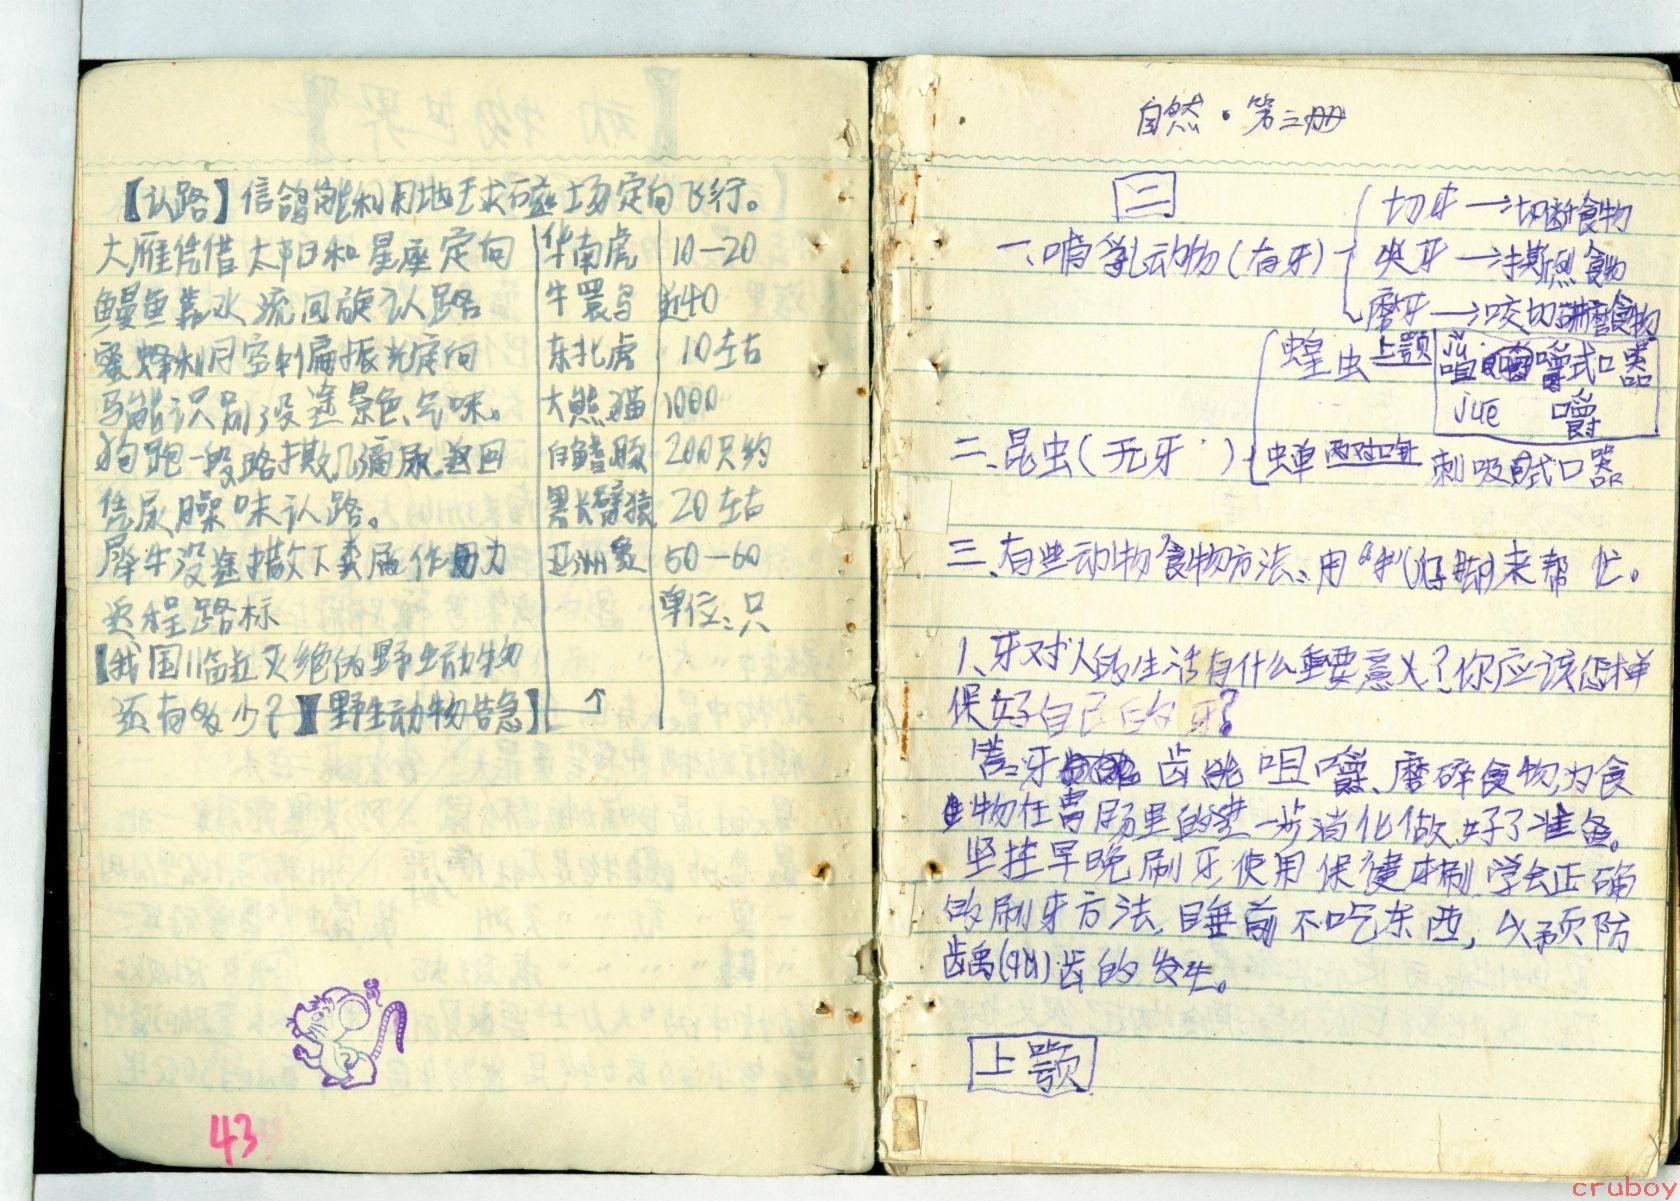 【认路】信鸽能利用地球磁场定向飞行。
大雁凭借太阳和星座定向
鳗鱼靠水流回旋认路
蜜蜂利用空中偏振光定向
马能识别沿途景色、气味。
狗跑一段路撒几滴尿,返回
凭尿臊味认路。
犀牛沿途撒下粪尿作为
返程路标
【我国临近灭绝的野生动物
还有多少?】【野生动物告急】→
华南虎 10—20
牛羚鸟 近40
东北虎 10左右
大熊猫 1000
白鳍豚 200只约
黑长臂猿 20左右
亚洲象 50—60
单位:只
43
自然·第三册
二
一、哺乳动物(有牙)
切牙→切断食物
尖牙→撕烈食物
磨牙→咬切研磨食物
二、昆虫(无牙)
蝗虫 上颚 咀嚼式口器
jǔ
jué 嚼
蝉 刺吸式口器
三、有些动物食物方法、用“爪(好脚)来帮忙。
1、牙对人的生活有什么重要意义?你应该怎样
保好自己的牙?
答:牙齿能咀嚼、磨碎食物,为食
物在胃肠里的进一步消化做好了准备。
坚持早晚刷牙,使用保健牙刷,学会正确
的刷牙方法,睡前不吃东西,以预防
龋(qǔ)齿的发生。
上颚
cruboy